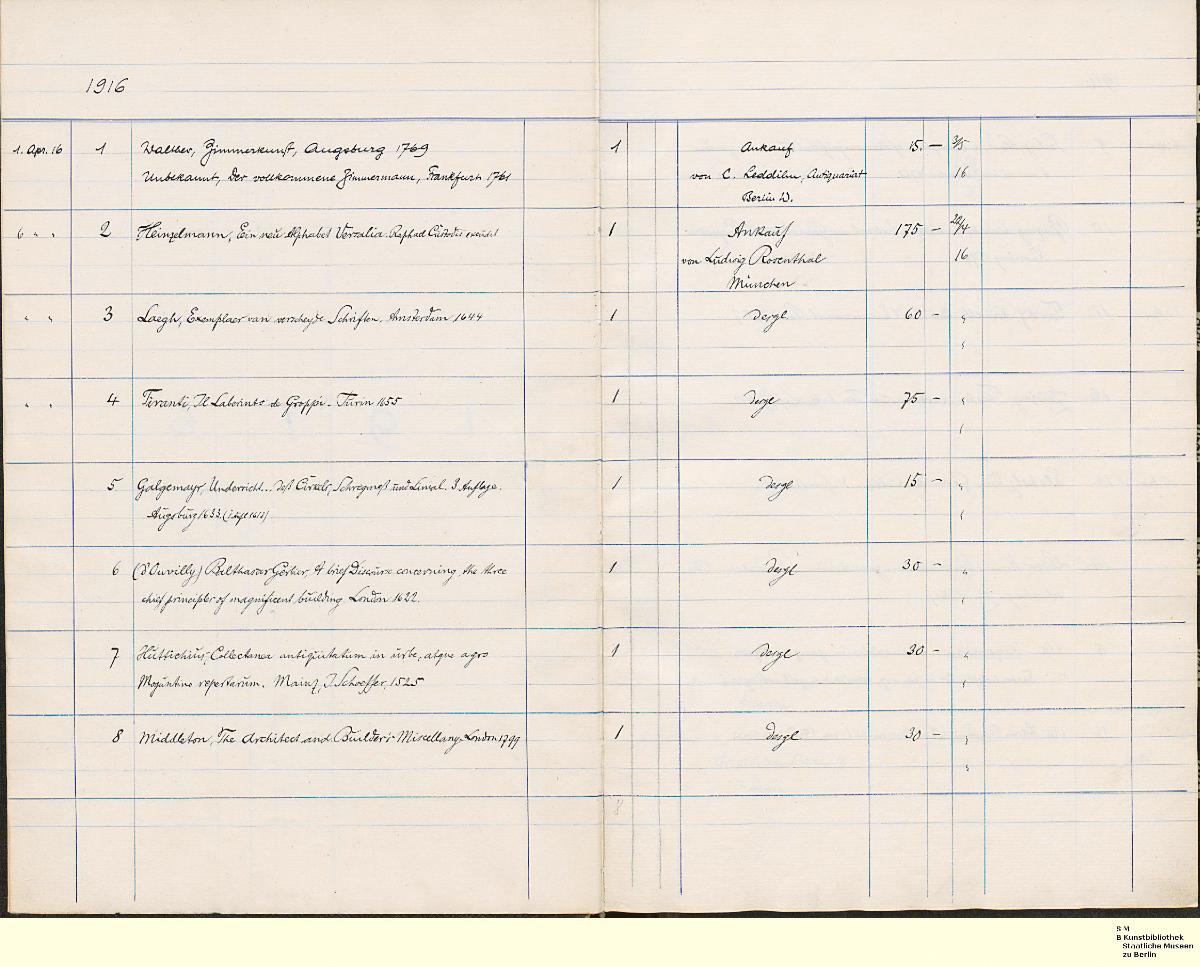 1916
1. Apr. 16 1 Walther, Zimmerkunst, Augsburg 1769 1 Ankauf 15. — 3/5
Unbekannt, Der vollkommene Zimmermann, Frankfurt 1761 von C. Antiquariat 16
Berlin W.
6 " " 2 Heinzelmann, Ein neu Alphabet Versalia. Raphael Custodis excudit 1 Ankauf 175 — 20/4
von Ludwig Rosenthal 16
München.
" " 3 Laegh, Exemplaer van verscheyde Schriften. Amsterdam 1644 1 dergl. 60 — "
"
" " 4 Tiranti, Il Laberinto de Groppi. Turin 1655 1 dergl 75 — "
"
5 Galgemayr, Underricht... deß Circkels, Schregmeß und Lineal. 3 Auflage. 1 dergl 15 — "
Augsburg 1633. "
6 (d'Ouvilly) Balthasar Gerbier, A brief Discourse concerning the three 1 dergl 30 — "
chief principles of magnificent building. London 1622. "
7 Huttichius, Collectanea antiquitatum in urbe, atque agro 1 dergl 30 — "
Moguntino repertarum. Mainz, J. Schoeffer, 1525 "
8 Middleton, The Architect and Builder's Miscellany. London 1799 1 dergl 30 — "
"
8
S M
B Kunstbibliothek
Staatliche Museen
zu Berlin